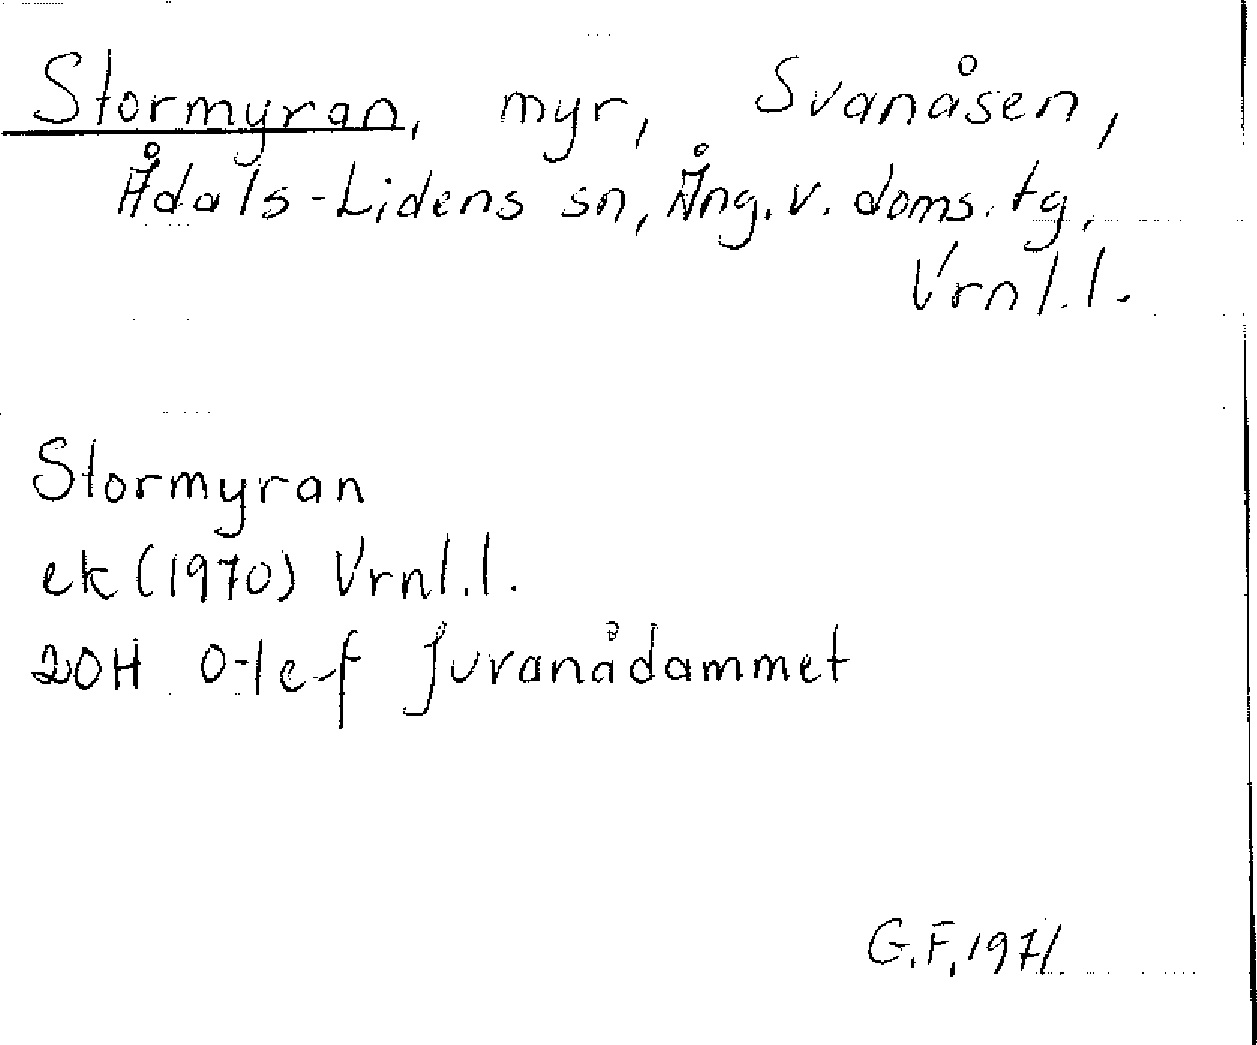 Stormyran, myr, Svanåsen,
Ådals-Lidens sn, Ång. v. doms. tg,
Vrnl.l.
Stormyran
ek (1970) Vrnl.l.
20H 0-1 e-f Juvanådammet
G.F. 1971